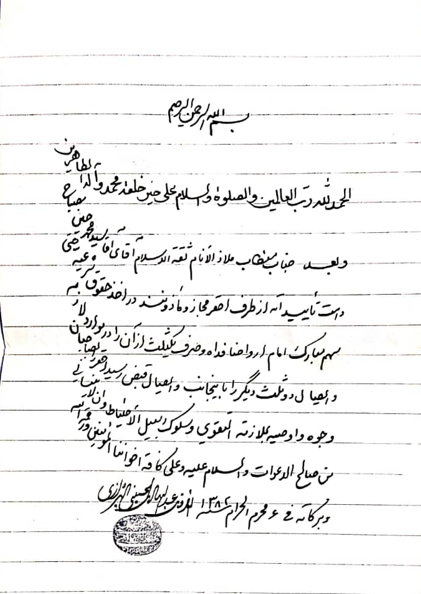 بسم الله الرحمن الرحیم
الحمدلله رب العالمین والصلوة والسلام علی خیر خلقه محمد وآله الطاهرین
وبعد جناب مستطاب ملاذ الانام ثقة الاسلام آقای آقا سید محمد
دامت تأییداته از طرف احقر مجاز و مأذونند در اخذ حقوق شرعیه
سهم مبارک امام ارواحنا فداه و صرف یک ثلث از آن را در موارد
و ایصال دو ثلث دیگر را باینجانب و ایصال قبض رسید
وجوه و اوصیه بملازمة التقوی و سلوک سبیل الاحتیاط وان لا ینسانی
من صالح الدعوات والسلام علیه وعلی کافة اخواننا المؤمنین ورحمة الله
وبرکاته فی ۶ محرم الحرام سنه ۱۳۸۲ عبدالهادی الحسینی الشیرازی